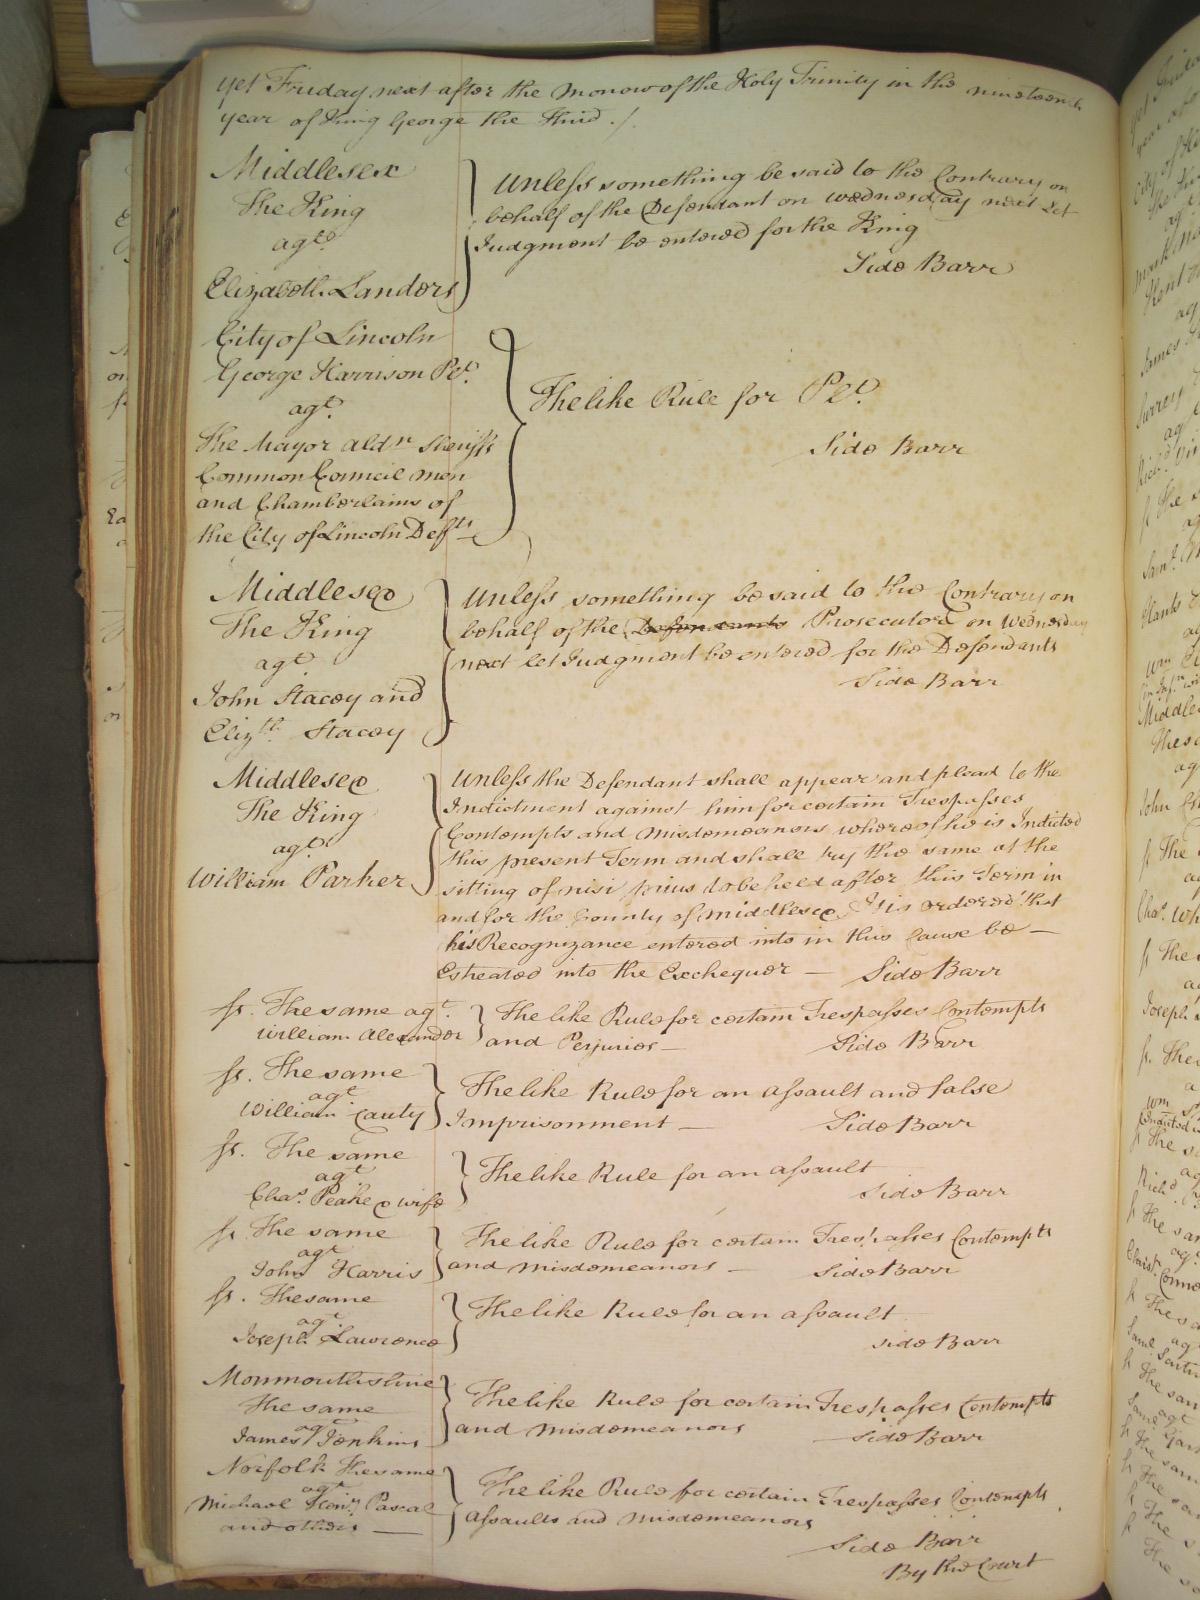 yet Friday next after the Morrow of the Holy Trinity in the nineteenth
year of King George the Third ./.
Middlesex
The King
agt
Elizabeth Sanders
Unless something be said to the Contrary on
behalf of the Defendant on Wednesday next Let
Judgment be entered for the King
Side Barr
City of Lincoln
George Harrison Pet.
agt.
The Mayor Aldn Sheriffs
Common Council men
and Chamberlains of
the City of Lincoln Defts
The like Rule for Pet.
Side Barr
Middlesex
The King
agt
John Stacey and
Elizth. Stacey
Unless something be said to the Contrary on
behalf of the Defendants Prosecutors on Wednesday
next let Judgment be entered for the Defendants
Side Barr
Middlesex
The King
agt
William Parker
Unless the Defendant shall appear and plead to the
Indictment against him for certain Trespasses
Contempts and Misdemeanors whereof he is Indicted
this present Term and shall try the same at the
sitting of nisi prius to be held after this Term in
and for the County of Middlesex It is ordered that
his Recognizance entered into in this Cause be —
Estreated into the Exchequer — Side Barr
ss. The same agt.
William Alexander
The like Rule for certain Trespasses Contempts
and Perjuries —
Side Barr
ss. The same
agt
William Cauty
The like Rule for an Assault and false
Imprisonment — Side Barr
ss. The same
agt
Chas. Peake & wife
The like Rule for an assault
Side Barr
ss The same
agt
John Harris
The like Rule for certain Trespasses Contempts
and Misdemeanors — Side Barr
ss. The same
agt
Joseph Lawrence
The like Rule for an assault
side Barr
Monmouthshire
The same
agt
James Jenkins
The like Rule for certain Trespasses Contempts
and Misdemeanors
Side Barr
Norfolk The same
agt
Michael Henry Pascal
and others —
The like Rule for certain Trespasses Contempts
Assaults and Misdemeanors
Side Barr
By the Court